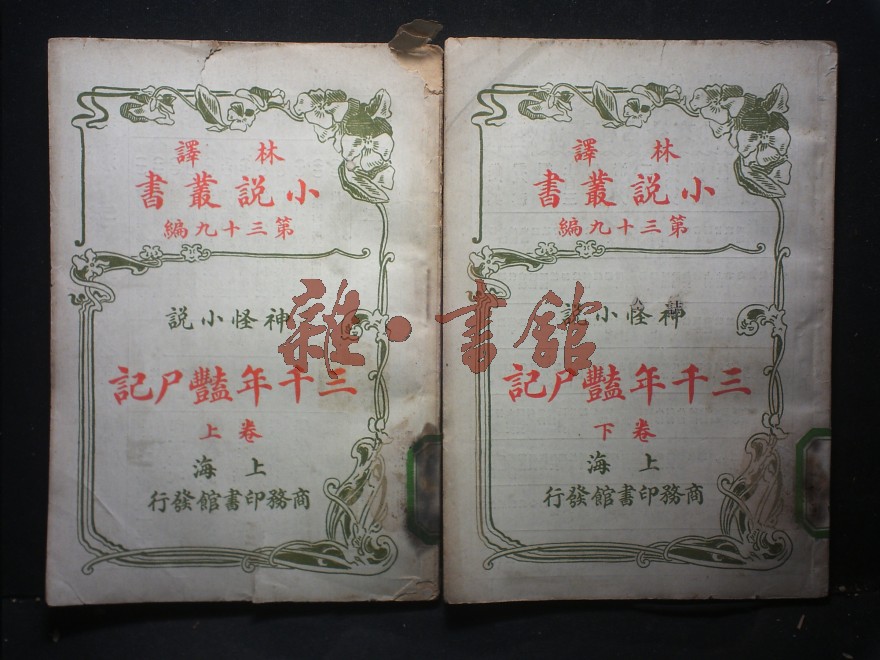 林譯
小說叢書
第三十九編
神怪小說
三千年豔尸記
卷上
上海
商務印書館發行
林譯
小說叢書
第三十九編
神怪小說
三千年豔尸記
卷下
上海
商務印書館發行
雜·書館